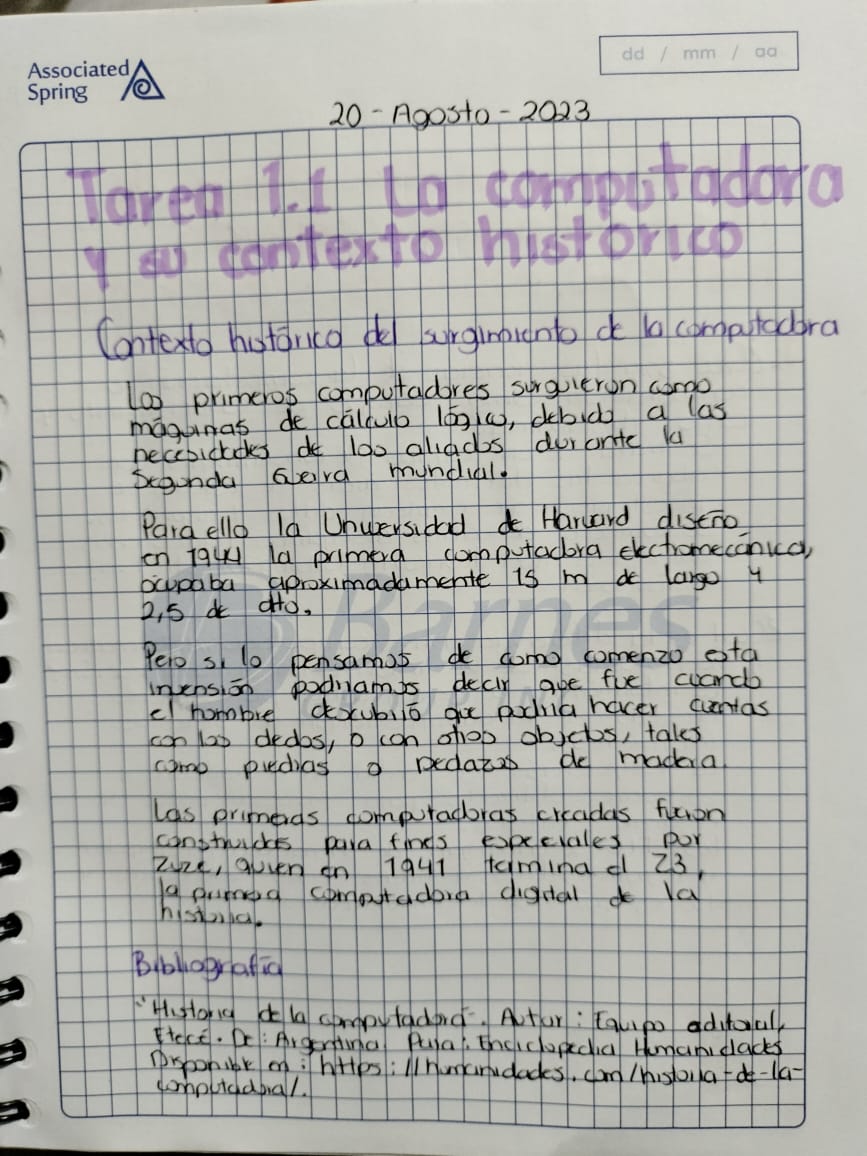 Associated
Spring
dd / mm / aa
20 - Agosto - 2023
Tarea 1.1 La computadora
y su contexto histórico
Contexto histórico del surgimiento de la computadora
Los primeros computadores surguieron como
máquinas de cálculo lógico, debido a las
necesidades de los aliados durante la
Segunda Guerra mundial.
Para ello la Universidad de Harvard diseño
en 1944 la primera computadora electromecánica,
ocupaba aproximadamente 15 m de largo y
2,5 de alto.
Barnes
Pero si lo pensamos de como comenzo esta
invensión podriamos decir que fue cuando
el hombre descubrió que podria hacer cuentas
con los dedos, o con otros objetos, tales
como piedras o pedazos de madera
Las primeras computadoras creadas fueron
construidas para fines especiales por
Zuze, quien en 1941 termina el Z3,
la primera computadora digital de la
historia.
Bibliografía
"Historia de la computadora". Autor: Equipo editorial,
Etecé. De: Argentina Para: Enciclopedia Humanidades
Disponible en: https://humanidades.com/historia-de-la-
computadora/.